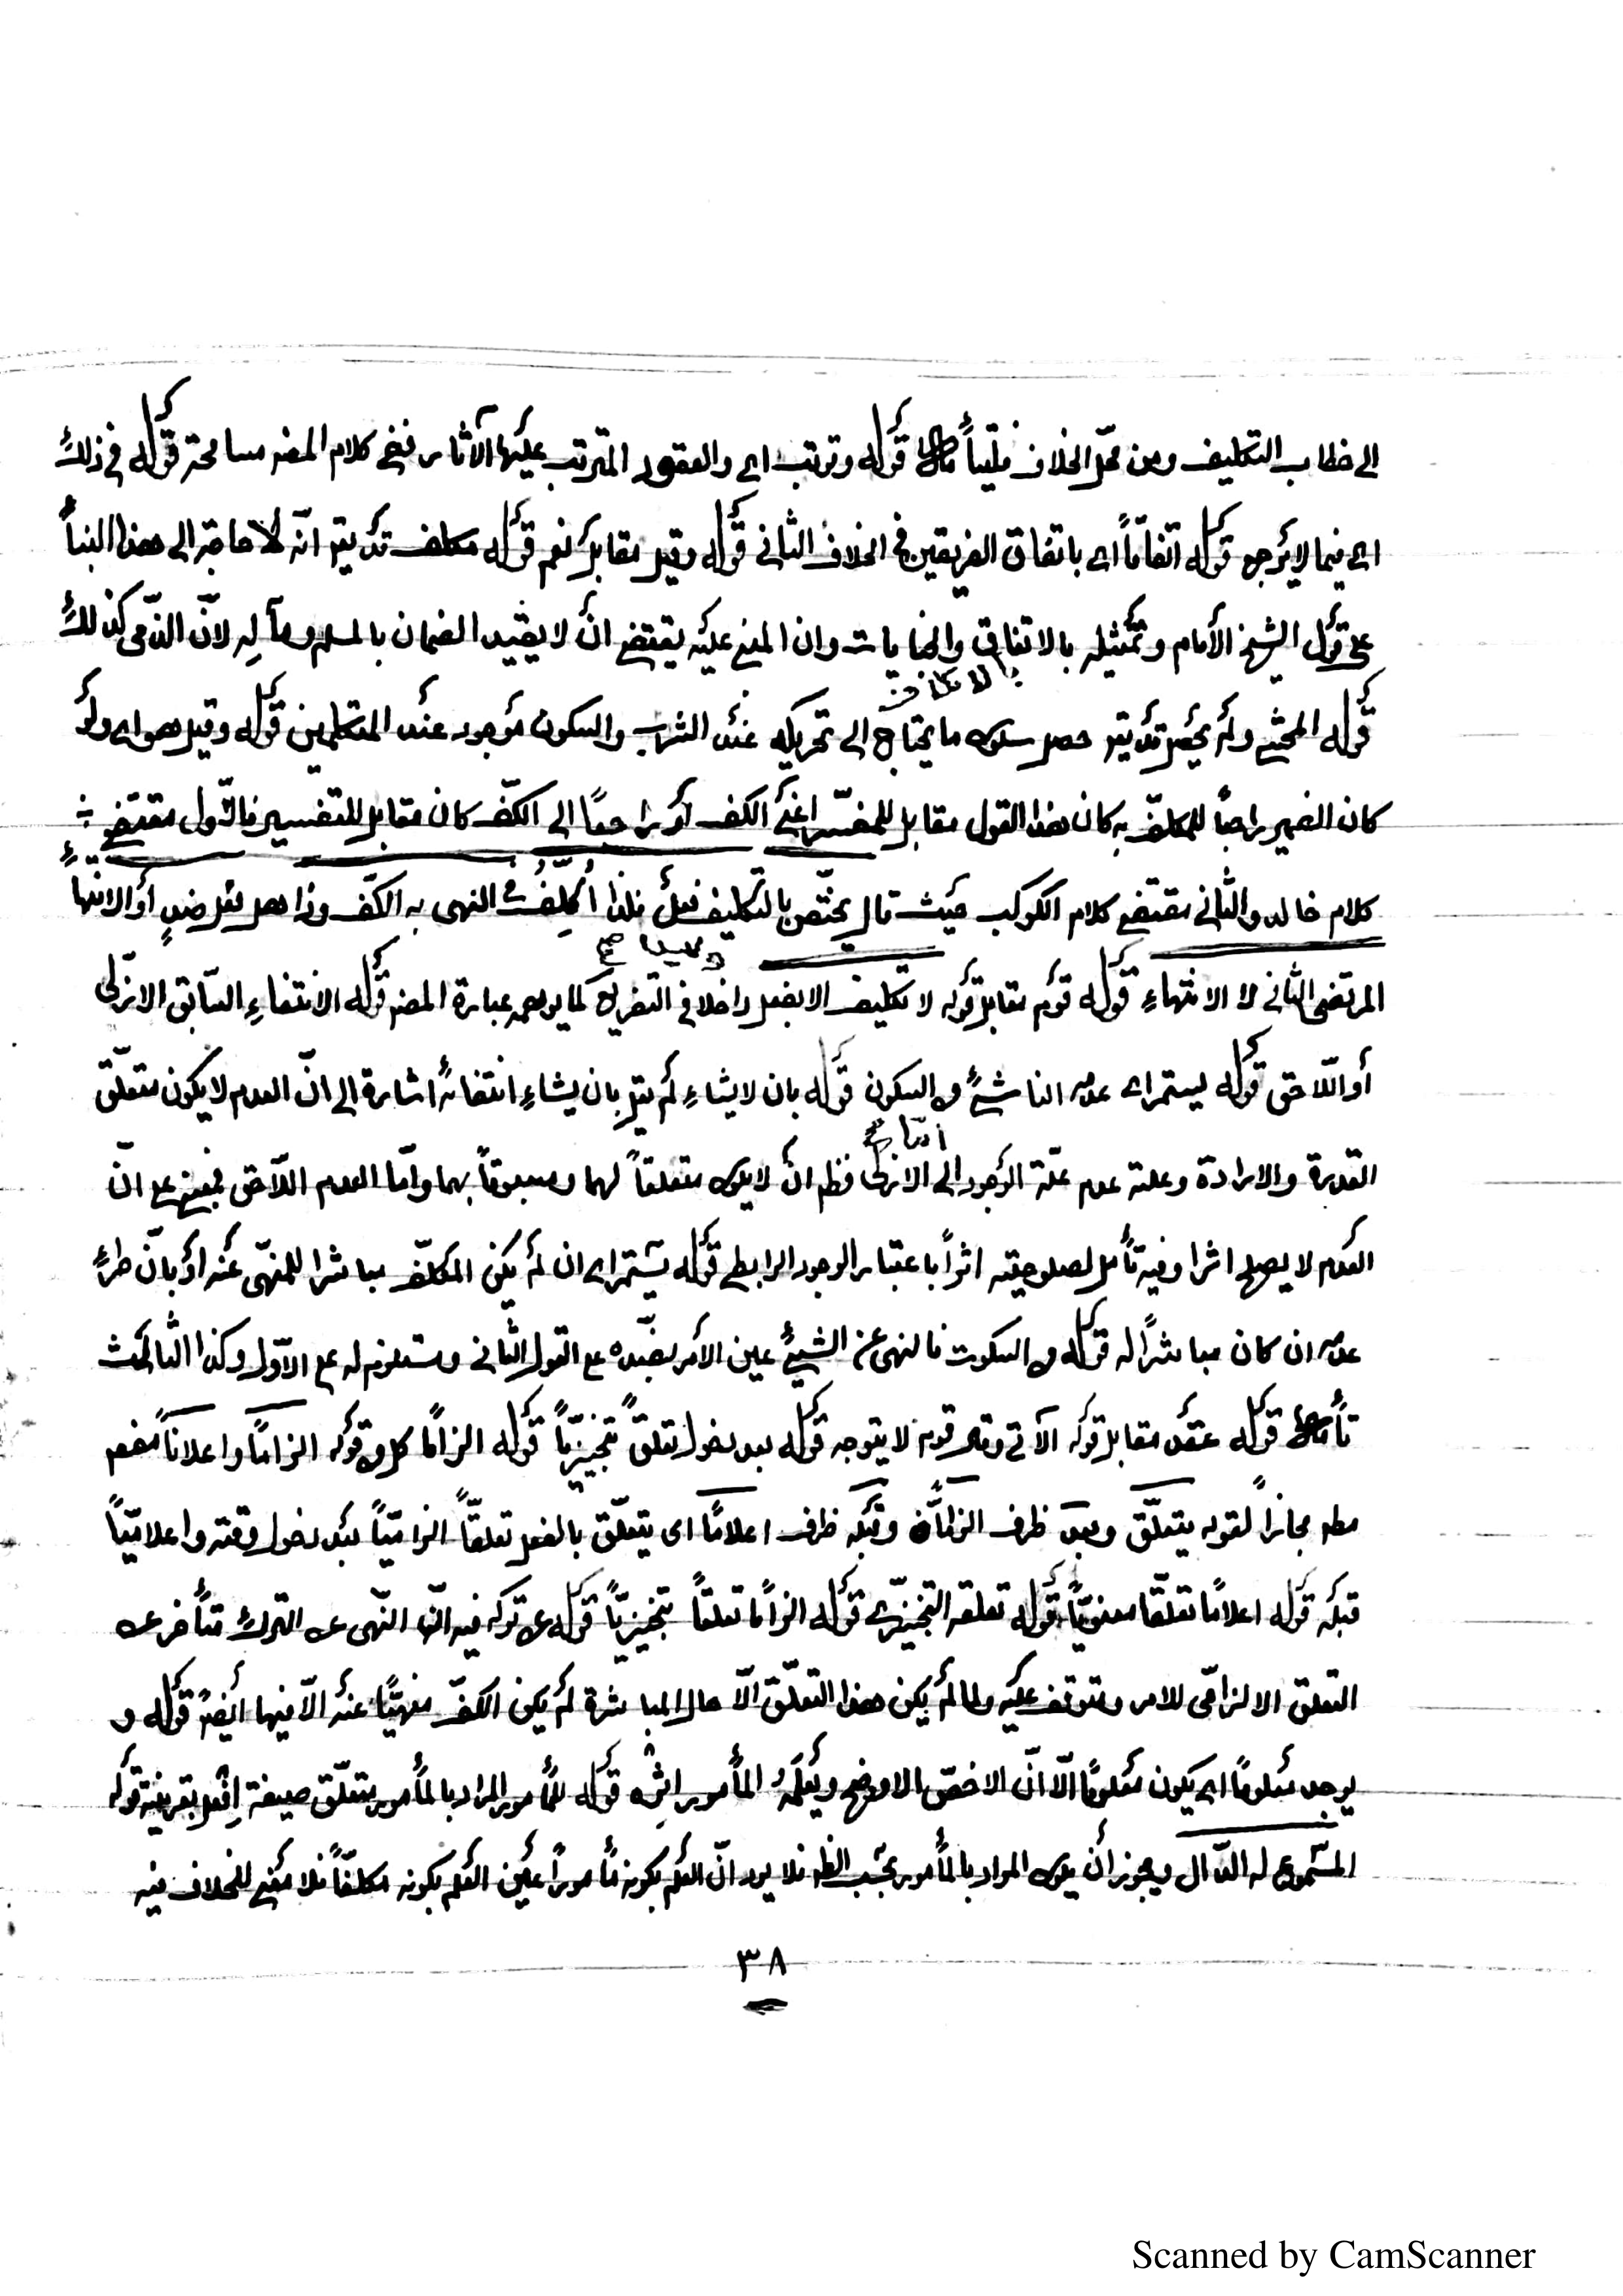 الى خطاب التكليف ومن محل الخلاف فليتأمل قوله وترتب اى والعقود المترتب عليها الآثار ففى كلام المصنف مسامحة قوله فى ذلك
اى فيما لا يرجع قوله اتفاقاً اى باتفاق الفريقين فى الخلاف الثانى قوله وقيل مقابل نعم قوله مكلف قد يقال انّه لا حاجة الى هذا البناء
على قول الشيخ الأمام وتمثيله بالاتفاق والجنايات وان المبنى عليه يقتضى ان لا يقيد الضمان بالمسلم ومآله لانّ الذمى كذلك
قوله المحشى ولم يحصل قد يقال حصل سكون ما يحتاج الى تحريكه عند الشرب والسكون موجود عند المتكلمين قوله وقيل هو اى ولو
كان الضمير راجعاً للمكلف به كان هذا القول مقابل للمفسّر اعنى الكف أو راجعاً الى الكفّ كان مقابل للتفسير فالأول مقتضى
كلام خالد والثانى مقتضى كلام الكوكب حيث قال يختص بالتكليف فعلى فلذا كلّف فى النهى به الكفّ وذا هل فعل ضدٍ أو الانتهاء
المرتضى الثانى لا الانتهاء قوله قوم مقابل قوله لا تكليف الا بفعل داخلا فى التفريع كما يوهمه عبارة المصنف قوله الانتفاء السابق الازلى
أو اللّاحق قوله ليستمر اى عدمه الناشئ والسكون قوله بان لا يشاء لم يقل بان يشاء انتفائه اشارة الى انّ العدم لا يكون متعلّق
القدرة والارادة وعلته عدم علّة الوجود الى الازلى فظهر ان لا يكون متعلقاً لهما ومسبوقاً بهما وامّا العدم اللّاحق فمبنى على انّ
العدم لا يصلح اثرا وفيه تأمل لصلوحيته اثراً باعتبار الوجود الرابطى قوله يستمر اى ان لم يكن المكلّف مباشرا للمنهى عنه أو بان طرء
عدمه ان كان مباشرًا له قوله والسكوت فالنهى عن الشيئ عين الأمر بضدّه على القول الثانى ومستلزم له على الأوّل وكذا الثالث
تأمل قوله عقد مقابل قوله الآتى وقال قوم لا يتوجه قوله بعد دخول تعلقاً تنجيزيّاً قوله الزامًا كل من قوله الزامًا واعلاناً مفعم
مطلق مجازاً لقوله يتعلّق وبعد ظرف الزامًا وقبله ظرف اعلامًا اى يتعلّق بالفعل تعلقاً الزاميّاً بعد دخول وقته واعلاميّاً
قبله قوله اعلامًا تعلقًا معنويّاً قوله تعلقه التنجيزى قوله الزامًا تعلقاً تنجيزيّاً قوله عن تركه فيه انّ النّهى عن الترك متأخر عن
التعلق الالزامى للامر ومتوقف عليه ولما لم يكن هذا التعلّق الّا حال المباشرة لم يكن الكفّ منهيًا عنه الّا فيها أيضاً قوله و
يوجد معلومًا اى يكون معلومًا الّا انّ الاخصّ الاوضح ويعلم المأمور اثره قوله للمأمور المراد بالمأمور متعلّق صيغة إفعل بقرينة قوله
المسموع له الدّال ويجوز أن يكون المراد بالمأمور بحسب الظ فلا يرد انّ العلم بكونه مأموراً عين العلم بكونه مكلفاً فلا معنى للخلاف فيه
٣٨
Scanned by CamScanner